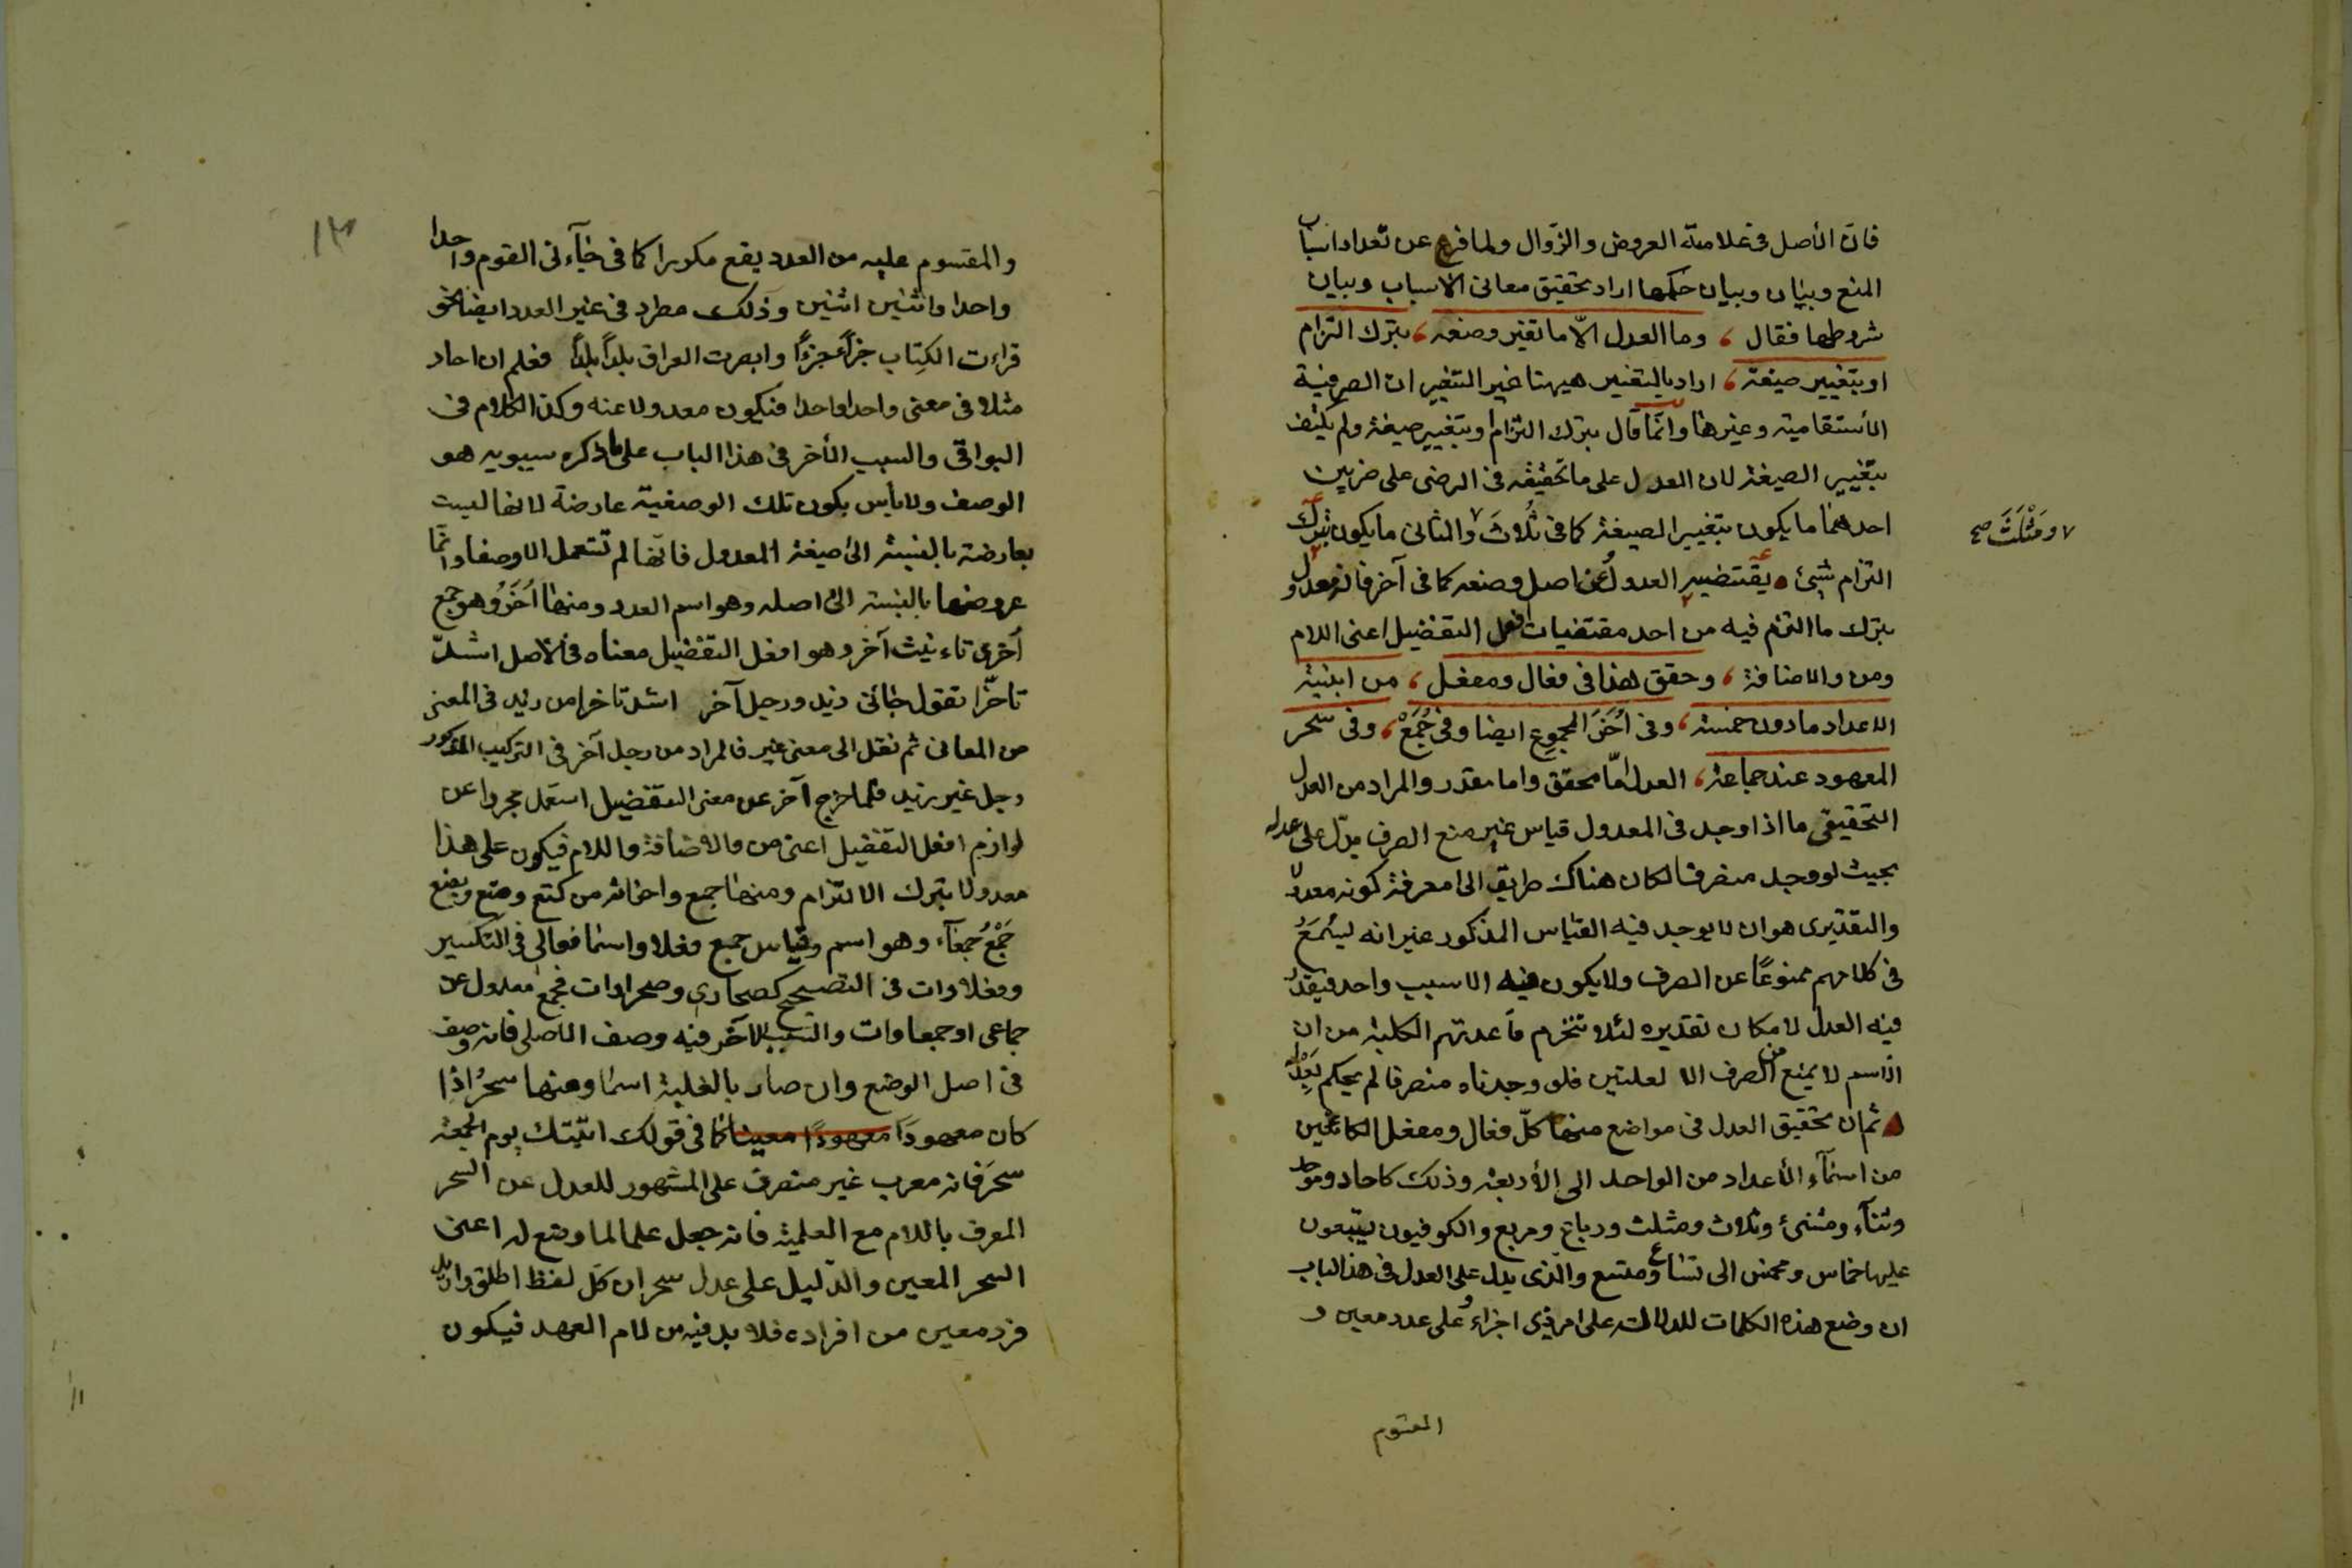 فان الأصل فى علامته العروض والزوال ولما فرغ عن تعداد اسباب
المنع وبيان وبيان حكمها اراد تحقيق معانى الاسباب وبيان
شروطها فقال ، وما العدل الّا ما تغير وضعه ، بترك التزام
او بتغيير صيغة ، اراد بالتغيير هيهنا غير التغييران الصرفية
وغيرها وانّما قال بترك التزام او بتغيير صيغة ولم يكتف
بتغيير الصيغة لان العدل على ما تحقيقه فى الرضى على ضربين
احدهما ما يكون بتغيير الصيغة كما فى ثُلاثَ والثانى ما يكون بترك
ومَثْلَثَ صح
التزام شيئ يقتضيه العدول عن اصل وضعه كما فى آخر فانه معدول
بترك ما التزم فيه من احد مقتضيات افعل التفضيل اعنى اللام
ومن والاضافة ، وحقق هذا فى فعال ومفعل ، من ابنية
الاعداد مادون خمسة ، وفى اُخَرَ المجموع ايضا وفى جُمَعْ ، وفى سحر
المعهود عند جماعة ، العدل امّا محقق واما مقدر والمراد من العدل
التحقيقى ما اذا وجد فى المعدول قياس غير منع الصرف يدلّ على عدله
بحيث لو وجد منصرفا لكان هناك طريق الى معرفة كونه معدولا
والتقديرى هو ان لا يوجد فيه القياس المذكور غير انه ليسُمَعُ
فى كلامهم ممنوعًا عن الصرف ولا يكون فيه الا سبب واحد فيقدر
فيه العدل لامكان تقديره لئلا تنخرم قاعدتهم الكلية من ان
الاسم لا يمنع من الصرف الا لعلتين فلو وجدناه منصرفا لم يحكم بعدله
ثم ان تحقيق العدل فى مواضع منها كلّ فعال ومفعل الكائنين
من اسمآء الأعداد من الواحد الى الأربعة وذلك كاحاد وموحد
وثنآء ومثنىٰ وثلاث ومثلث ورباع ومربع والكوفيون يتبعون
عليها خماس ومخمس الى تساع ومتسع والّذى يدل على العدل فى هذا الباب
ان وضع هذه الكلمات للدلالة على امر ذى اجزاء على عدد معين و
المقسوم
١٣
والمقسوم عليه من العدد يقع مكررا كما فى جآءنى القوم واحدا
واحدا واثنين اثنين وذلك مطرد فى غير العدد ايضا نحو
قراءت الكِتاب جزأً جزءًا وابصرت العراق بلدًا بلدًا فعلم ان احاد
مثلا فى معنى واحدا واحدا فيكون معدولا عنه وكذا الكلام فى
البواقى والسبب الأخر فى هذا الباب على ما ذكره سيبويه هو
الوصف ولا بأس بكون تلك الوصفية عارضة لانها ليست
بعارضة بالنسبة الى صيغة المعدول فانّها لم تستعمل الا وصفا وانّما
عروضها بالنسبة الى اصله وهو اسم العدد ومنها اُخَرُ وهو جمع
اُخرى تاءنيث آخر وهو افعل التفضيل معناه فى الاصل اشدّ
تاخّرا تقول جائنى زيد ورجل آخر اشد تاخرا من زيد فى المعنى
من المعانى ثم نقل الى معنى غير فالمراد من رجل آخر فى التركيب المذكور
رجل غير زيد فلما خرج آخر عن معنى التفضيل استعمل مجردا عن
لوازم افعل التفضيل اعنى من والاضافة واللام فيكون على هذا
معدولا بترك الالتزام ومنها جمع واخواته من كتع وبتع وبصع
جَمْعُ جمعآء وهو اسم وقياس جمع فعلاء اسما فعالى فى التكسير
وفعلاوات فى التصحيح كصحارى وصحراوات فجمع معدول عن
جماعى او جمعاوات والسبب الاخر فيه وصف الاصلى فانه وصف
فى اصل الوضع وان صار بالغلبة اسما ومنها سحرُ اذا
كان معهودًا معهودًا معينا كما فى قولك اتيتك يوم الجمعة
سحَرَ فانه معرب غير منصرف على المشهور للعدل عن السحر
المعرف باللام مع العلمية فانه جعل علما لما وضع له اعنى
السحر المعين والدّليل على عدل سحر ان كل لفظ اطلق واريد
فرد معين من افراده فلا بد فيه من لام العهد فيكون
١١